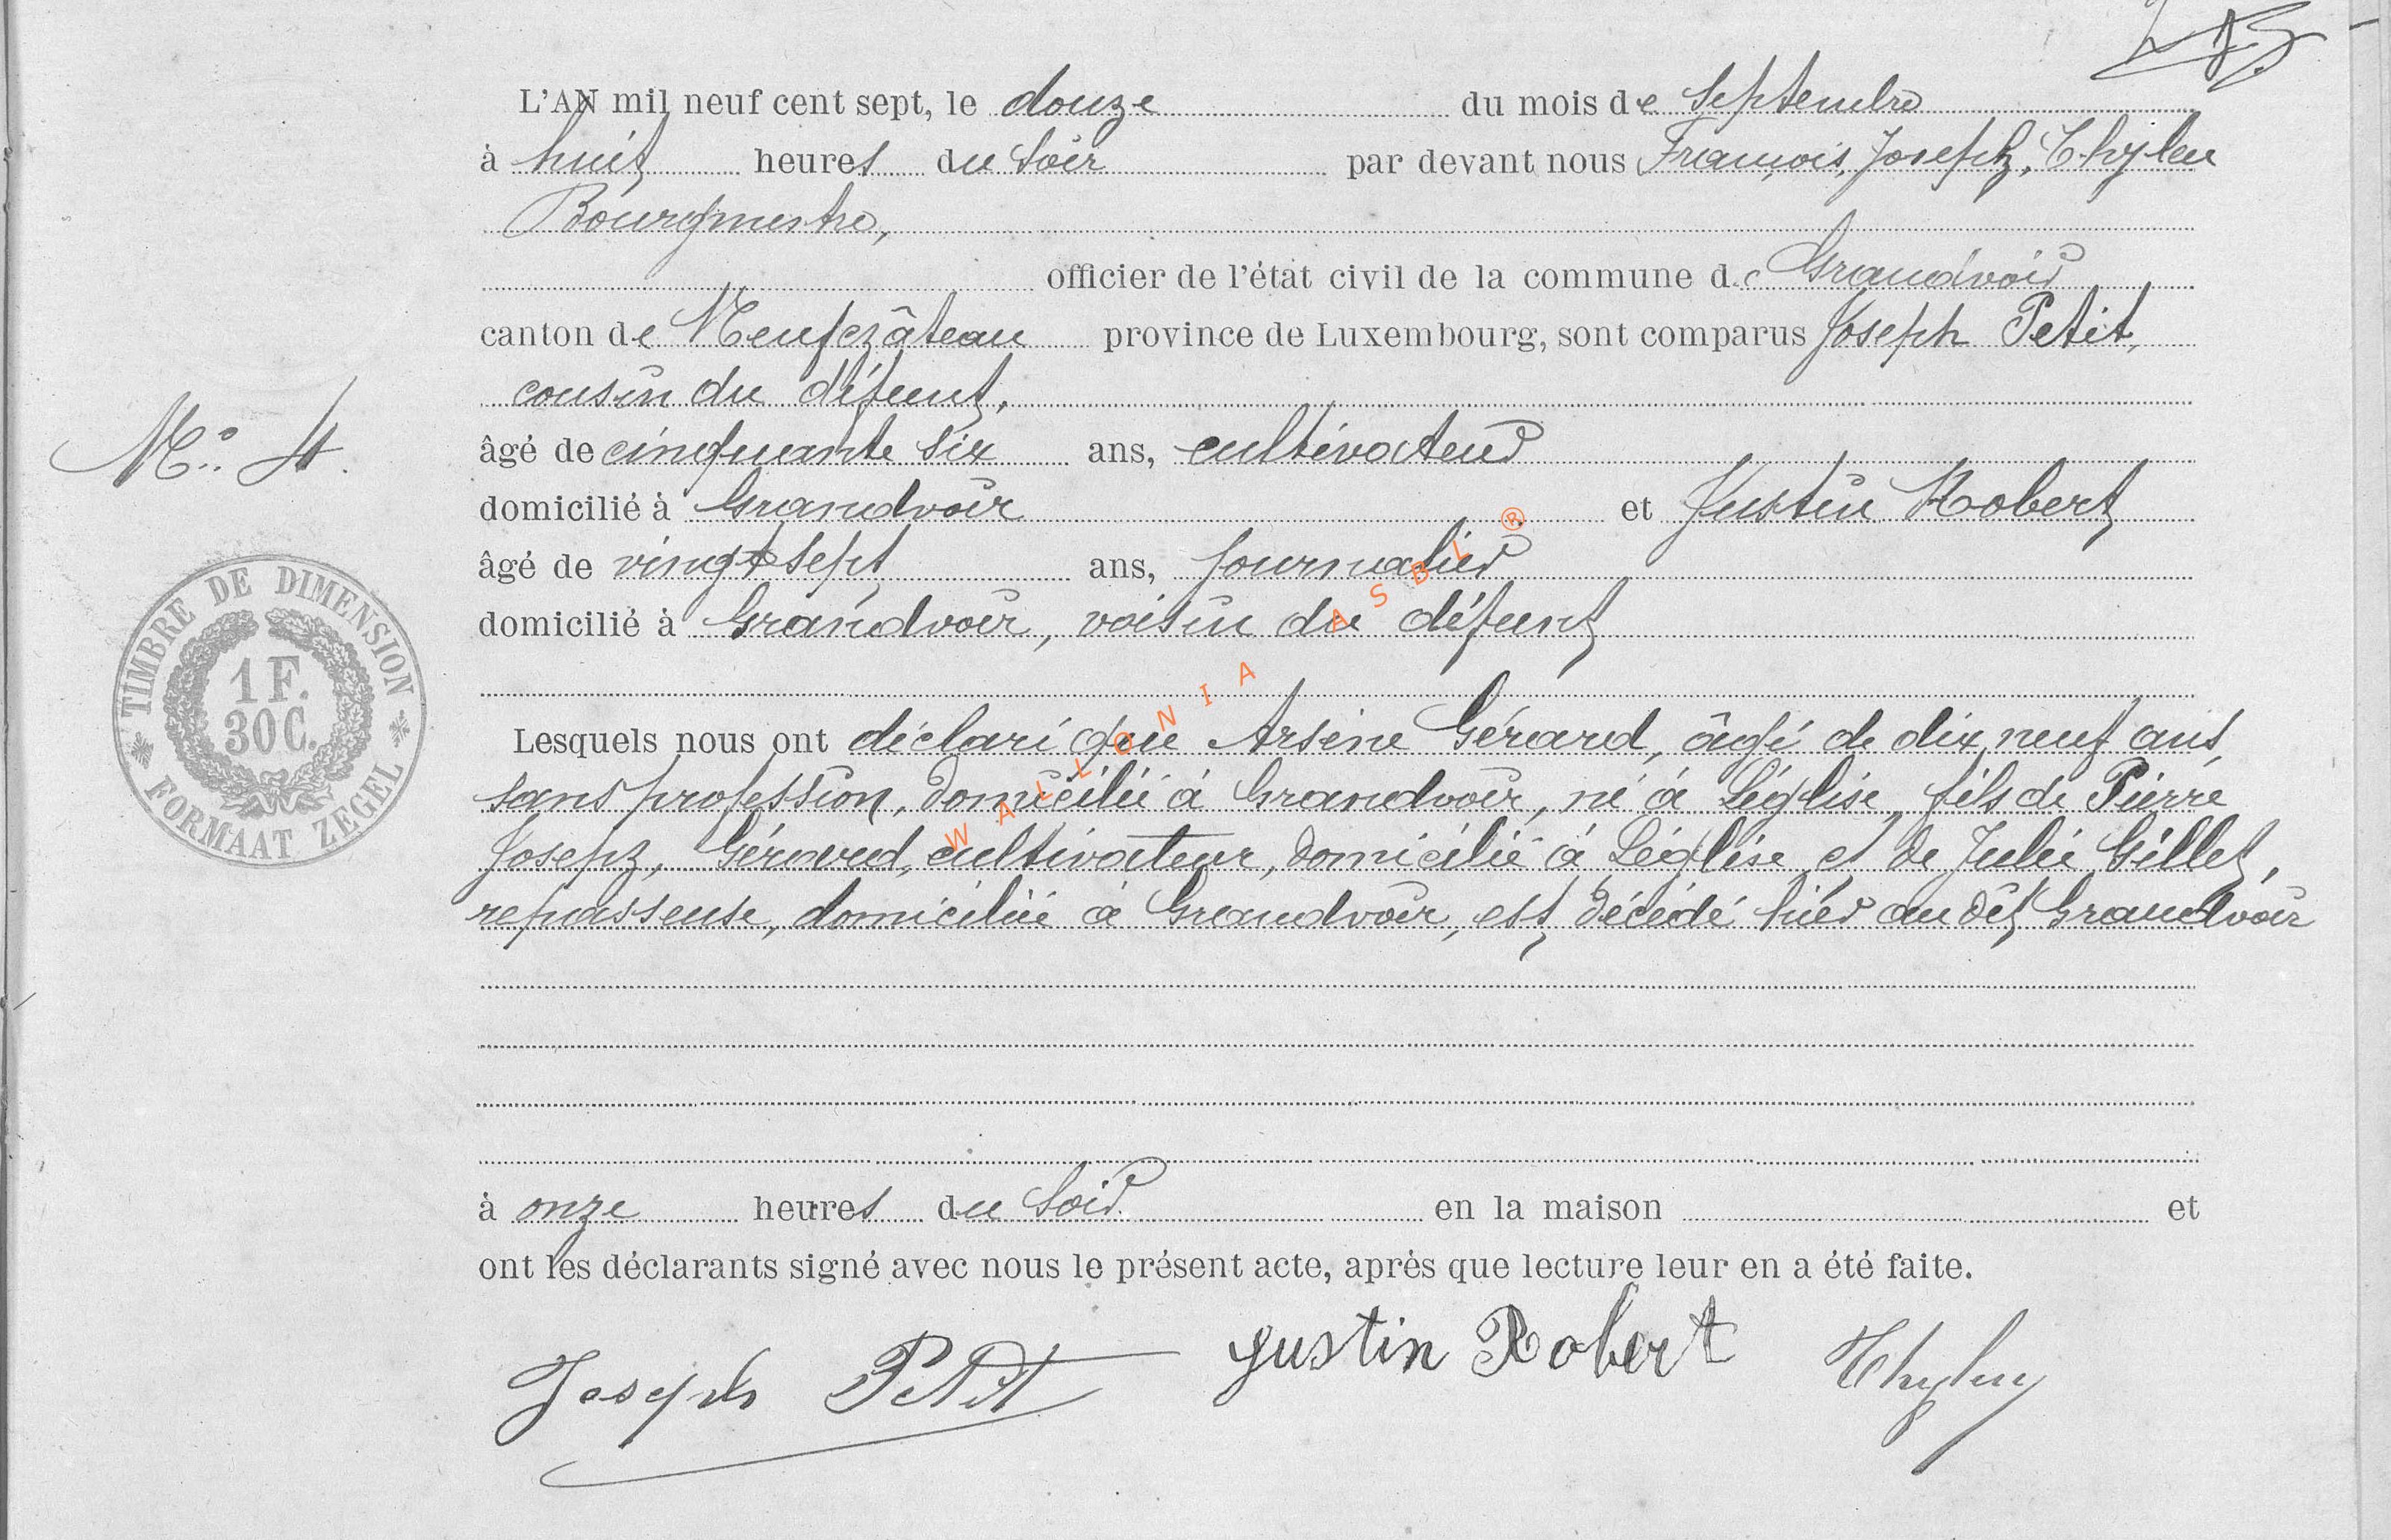 L'AN mil neuf cent sept, le douze du mois de Septembre
à huit heures du Soir par devant nous François, Joseph, Thylen
Bourgmestre,
officier de l'état civil de la commune de Grandvoir
canton de Neufchâteau province de Luxembourg, sont comparus Joseph Petit,
cousin du défunt,
N° 4.
âgé de cinquante six ans, cultivateur
domicilié à Grandvoir et Justin Robert
âgé de vingt sept ans, journalier
domicilié à Grandvoir, voisin du défunt
TIMBRE DE DIMENSION
1 F.
30 C.
FORMAAT ZEGEL
WALLONIA ASBL ®
Lesquels nous ont déclaré que Arsène Gérard, âgé de dix neuf ans,
sans profession, domicilié à Grandvoir, né à Léglise, fils de Pierre
Joseph, Gérard, cultivateur, domicilié à Léglise et de Julie Gillet,
repasseuse, domiciliée à Grandvoir, est décédé hier au dit Grandvoir
à onze heures du Soir en la maison et
ont les déclarants signé avec nous le présent acte, après que lecture leur en a été faite.
Joseph Petit Justin Robert Thylen